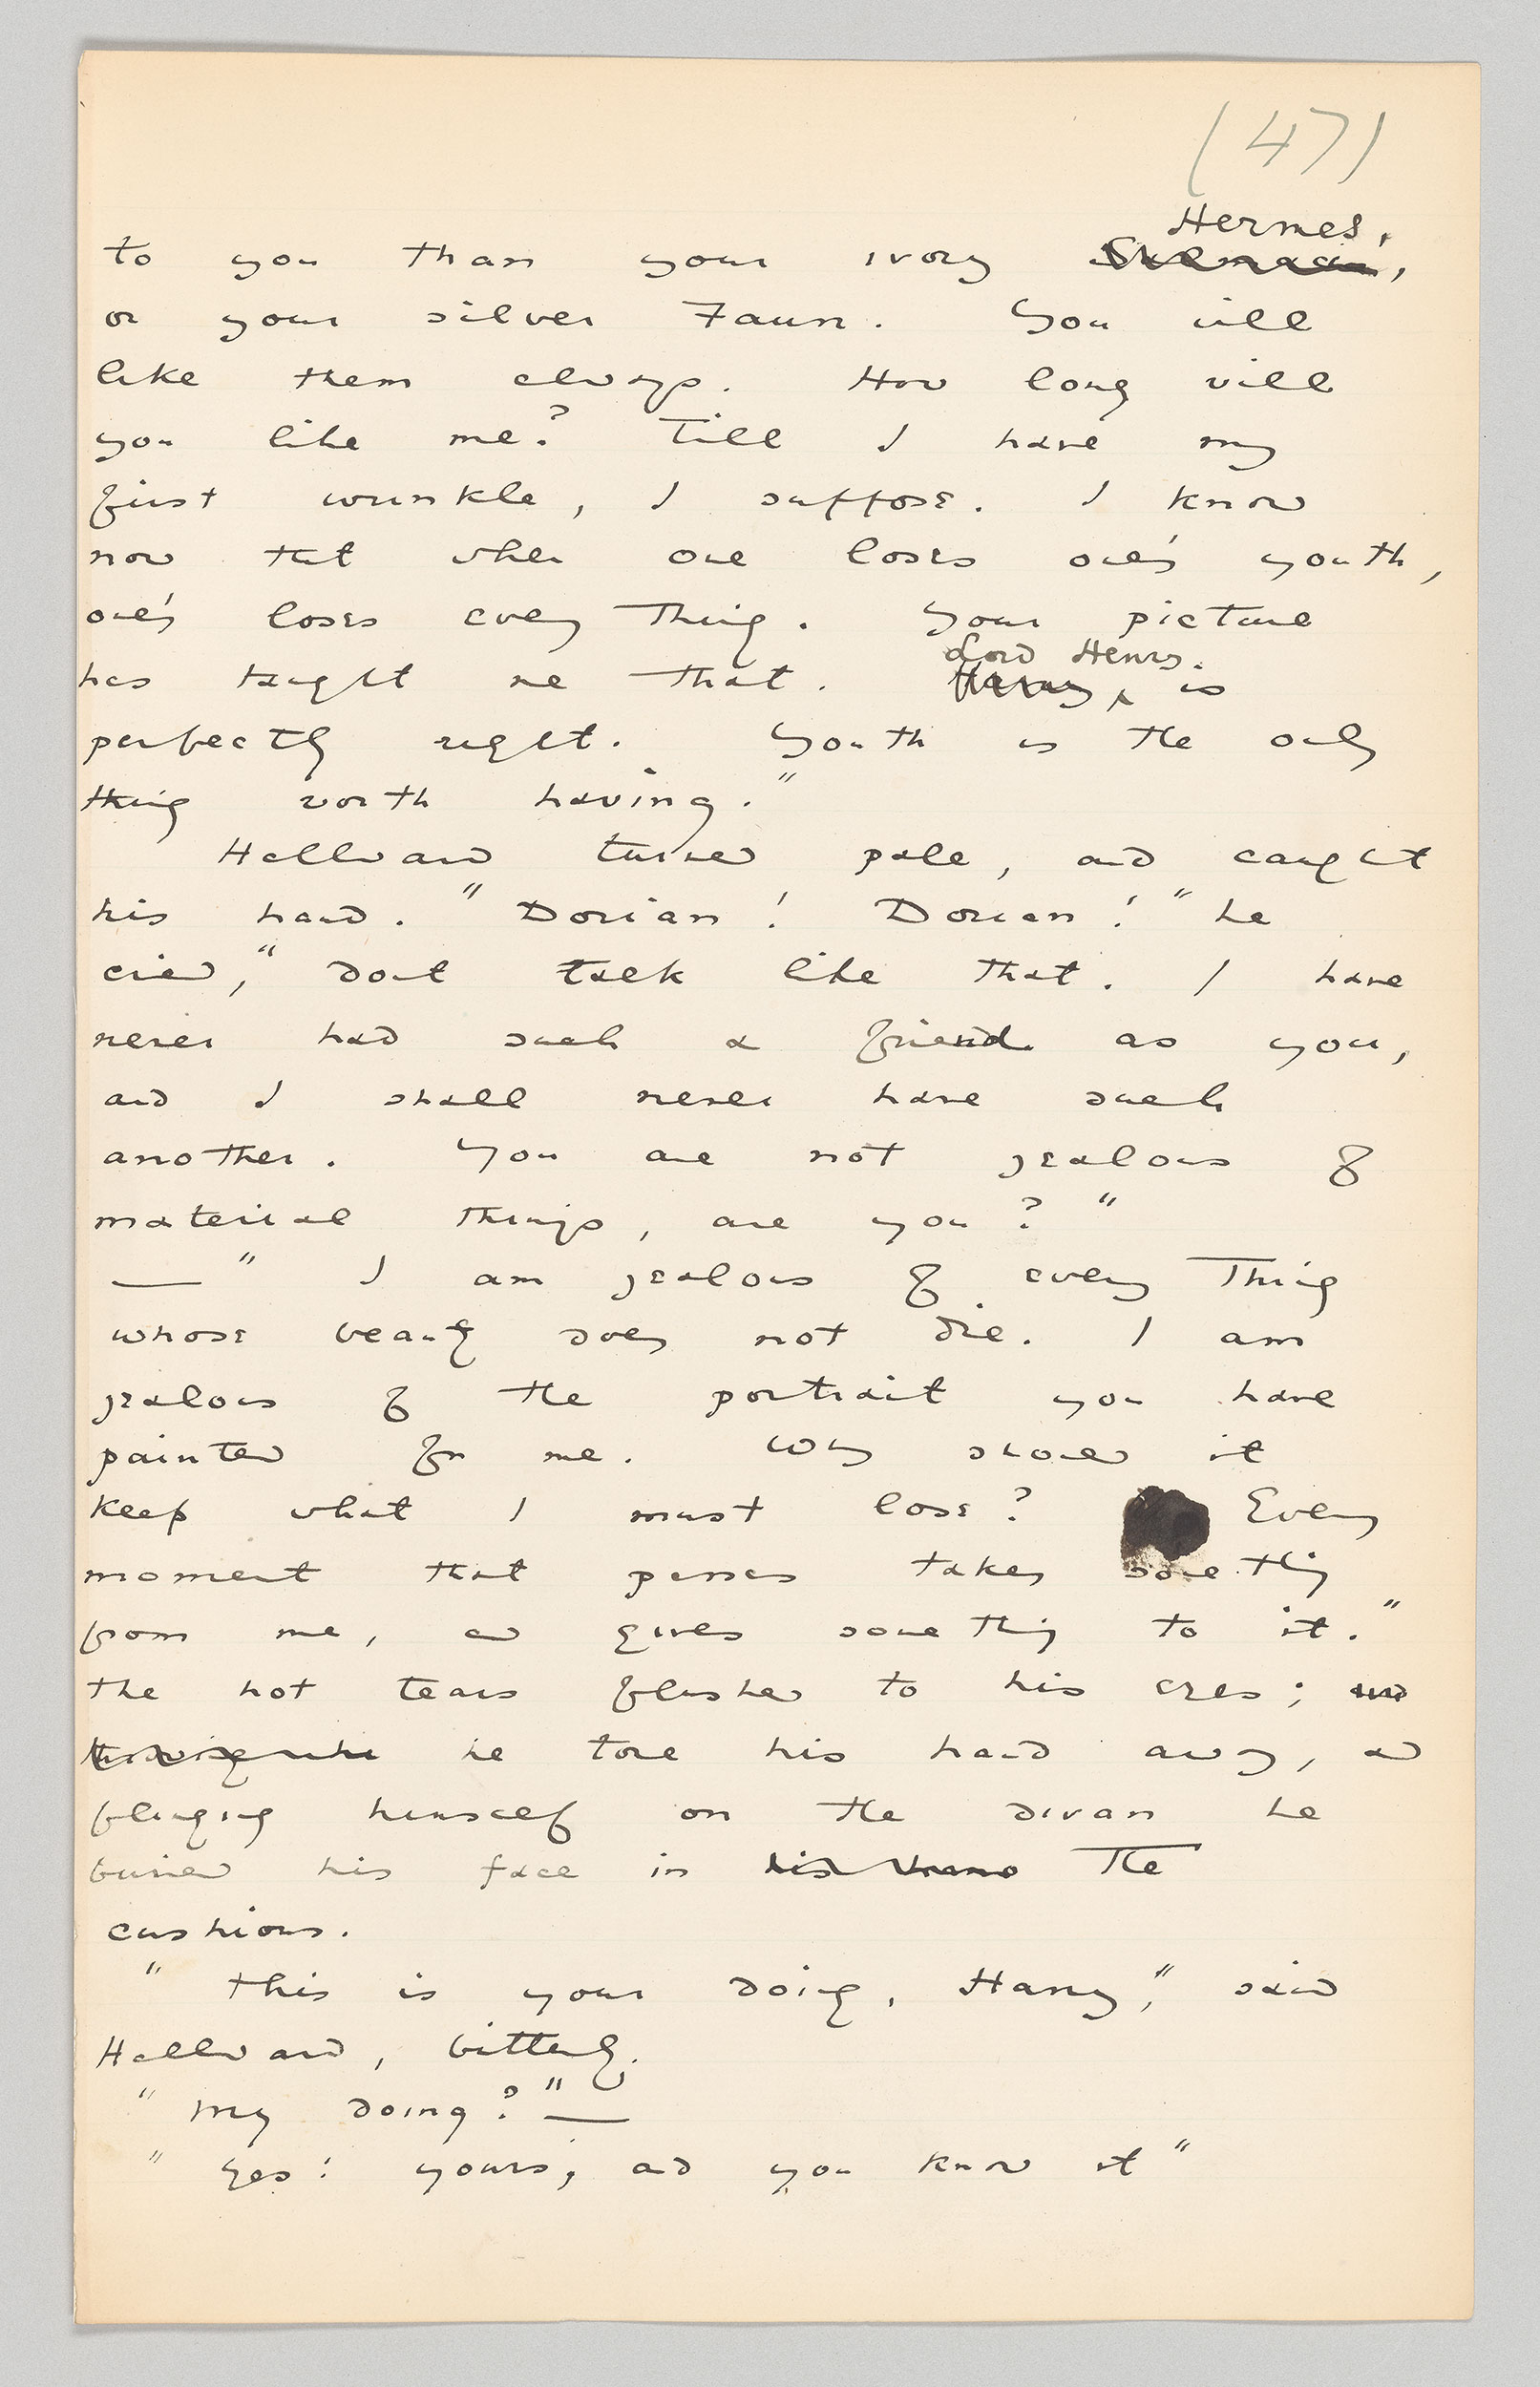 (47)
Hermes,
to you than your ivory
or your silver Faun. You will
like them always. How long will
you like me? Till I have my
first wrinkle, I suppose. I know
now that when one loses one's youth,
one's loses every thing. Your picture
Lord Henry.
has taught me that. Harry, is
perfectly right. Youth is the only
thing worth having."
Hallward turned pale, and caught
his hand. "Dorian! Dorian!" he
cried, "dont talk like that. I have
never had such a friend as you,
and I shall never have such
another. You are not jealous of
material things, are you?"
— " I am jealous of every thing
whose beauty does not die. I am
jealous of the portrait you have
painted of me. Why should it
keep what I must lose? Every
moment that passes takes something
from me, and gives something to it."
the hot tears flushed to his eyes; and
he tore his hand away, and
flinging himself on the divan he
buried his face in his the
cushions.
" this is your doing, Harry," said
Hallward, bitterly.
" my doing?" —
" yes: yours, and you know it"